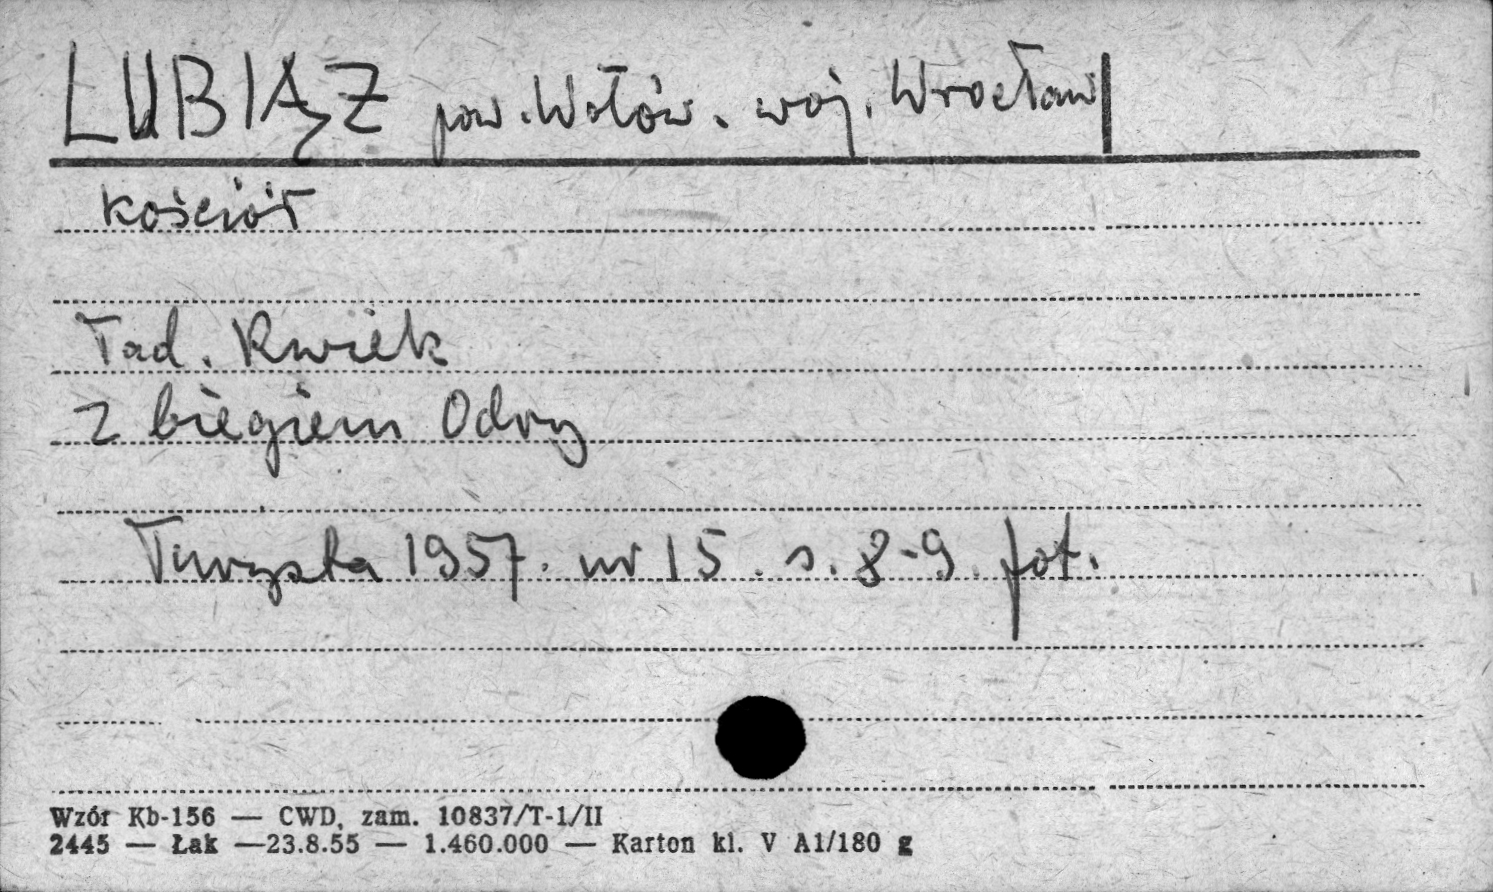 LUBIĄŻ pow. Wołów. woj. Wrocław
kościół
Tad. Kwiek
z biegiem Odry
Turysta 1957. nr 15. s. 8-9. fot.
Wzór Kb-156 — CWD, zam. 10837/T-1/II
2445 — Łak —23.8.55 — 1.460.000 — Karton kl. V A1/180 g